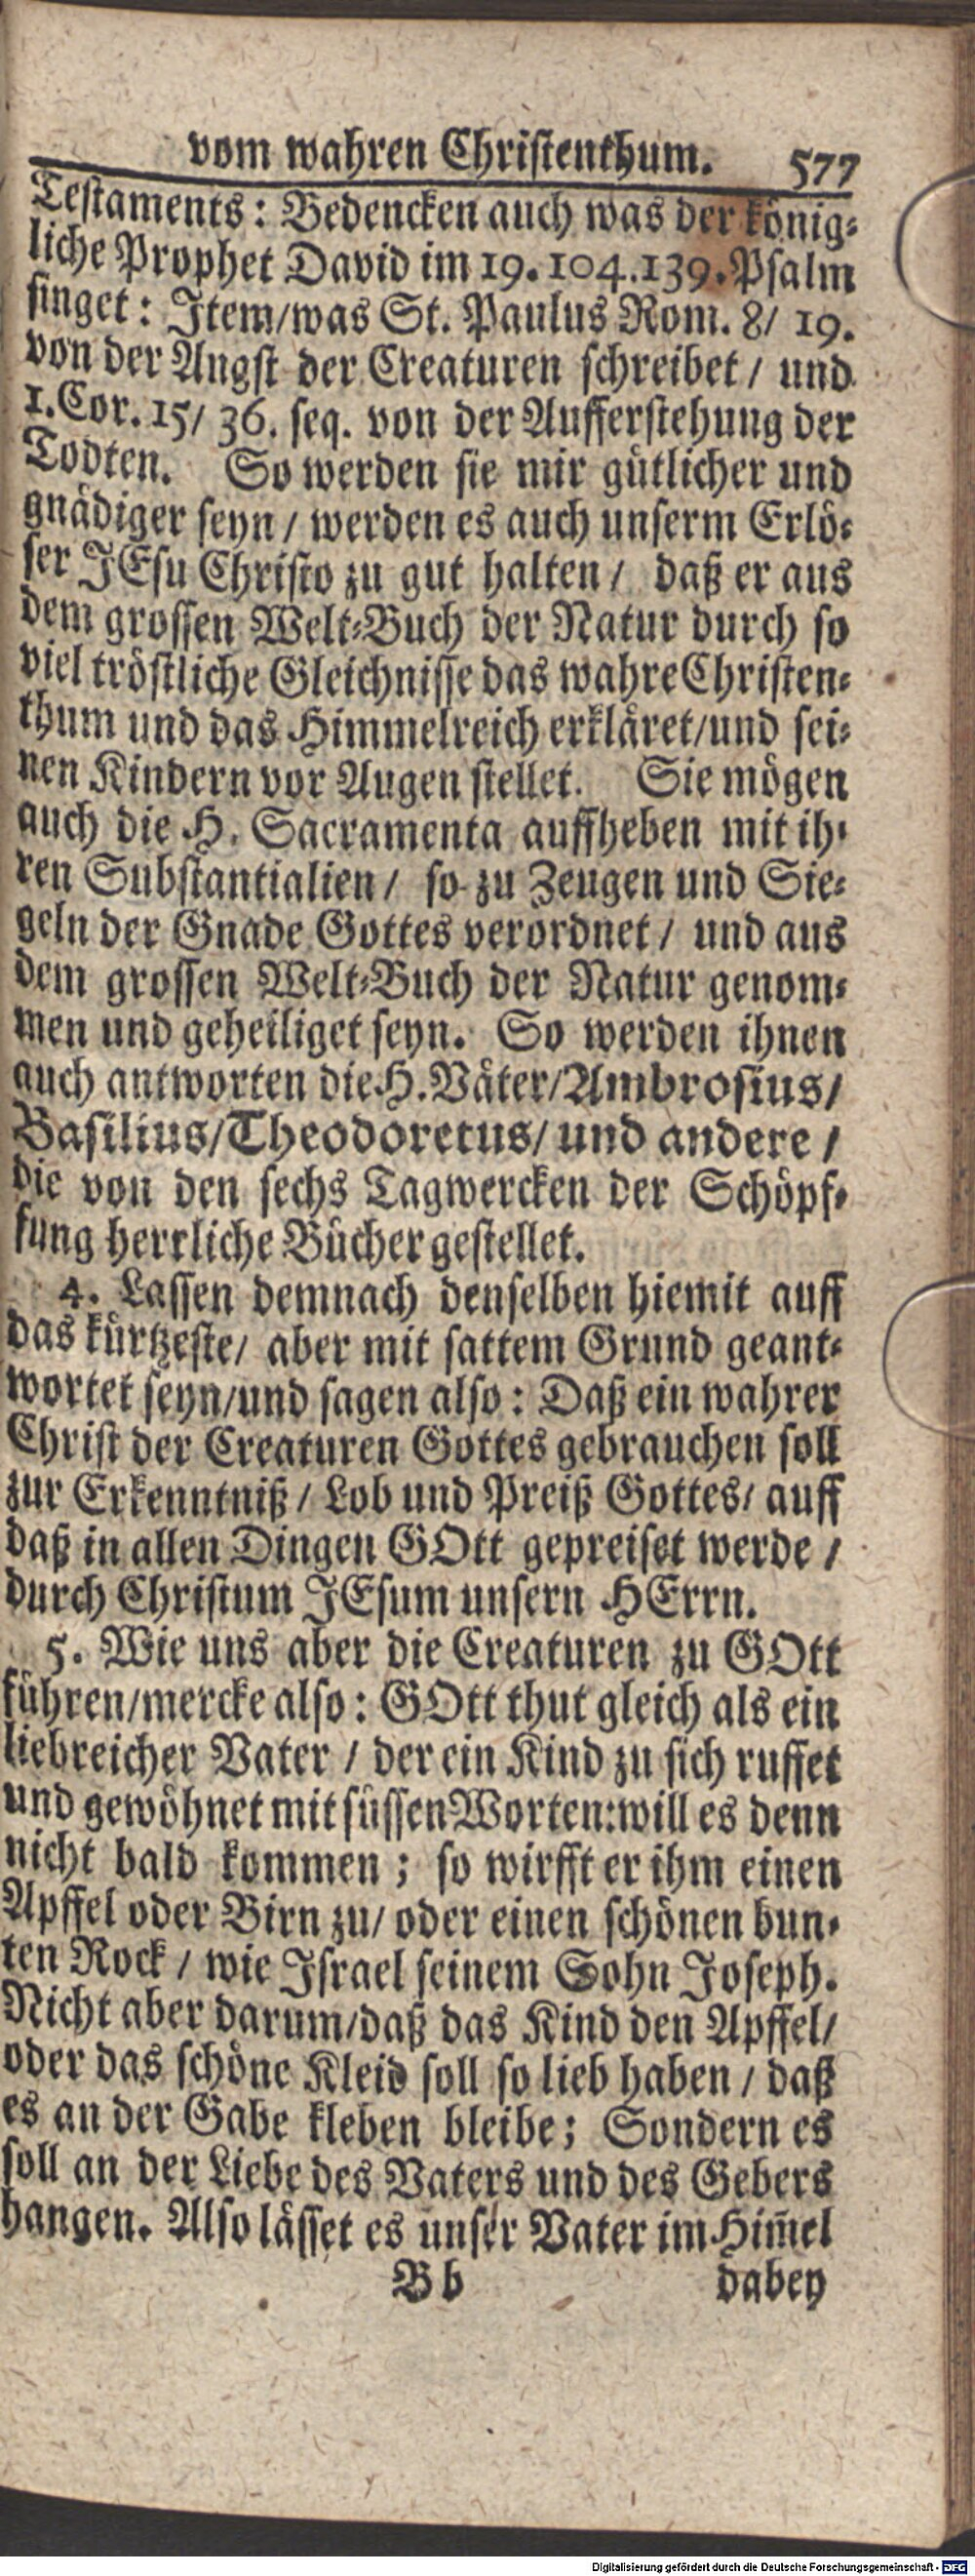 vom wahren Christenthum. 577
Testaments: Bedencken auch was der könig⸗
liche Prophet David im 19. 104. 139. Psalm
singet: Item/was St. Paulus Rom. 8/ 19.
von der Angst der Creaturen schreibet / und
1. Cor. 15/ 36. seq. von der Aufferstehung der
Todten. So werden sie mir gütlicher und
gnädiger seyn / werden es auch unserm Erlö⸗
ser JEsu Christo zu gut halten / daß er aus
dem grossen Welt⸗Buch der Natur durch so
viel tröstliche Gleichnisse das wahre Christen⸗
thum und das Himmelreich erkläret/und sei⸗
nen Kindern vor Augen stellet. Sie mögen
auch die H. Sacramenta auffheben mit ih⸗
ren Substantialien / so zu Zeugen und Sie⸗
geln der Gnade Gottes verordnet / und aus
dem grossen Welt⸗Buch der Natur genom⸗
men und geheiliget seyn. So werden ihnen
auch antworten die H. Väter/Ambrosius/
Basilius/Theodoretus/ und andere /
die von den sechs Tagwercken der Schöpf⸗
fung herrliche Bücher gestellet.
4. Lassen demnach denselben hiemit auff
das kürtzeste/ aber mit sattem Grund geant⸗
wortet seyn/und sagen also: Daß ein wahrer
Christ der Creaturen Gottes gebrauchen soll
zur Erkenntniß / Lob und Preiß Gottes/ auff
daß in allen Dingen GOtt gepreiset werde /
durch Christum JEsum unsern HErrn.
5. Wie uns aber die Creaturen zu GOtt
führen/mercke also: GOtt thut gleich als ein
liebreicher Vater / der ein Kind zu sich ruffet
und gewöhnet mit süssen Worten: will es denn
nicht bald kommen; so wirfft er ihm einen
Apffel oder Birn zu/ oder einen schönen bun⸗
ten Rock / wie Israel seinem Sohn Joseph.
Nicht aber darum/daß das Kind den Apffel/
oder das schöne Kleid soll so lieb haben / daß
es an der Gabe kleben bleibe; Sondern es
soll an der Liebe des Vaters und des Gebers
hangen. Also lässet es unser Vater im Him̄el
Bb dabey
Digitalisierung gefördert durch die Deutsche Forschungsgemeinschaft - DFG